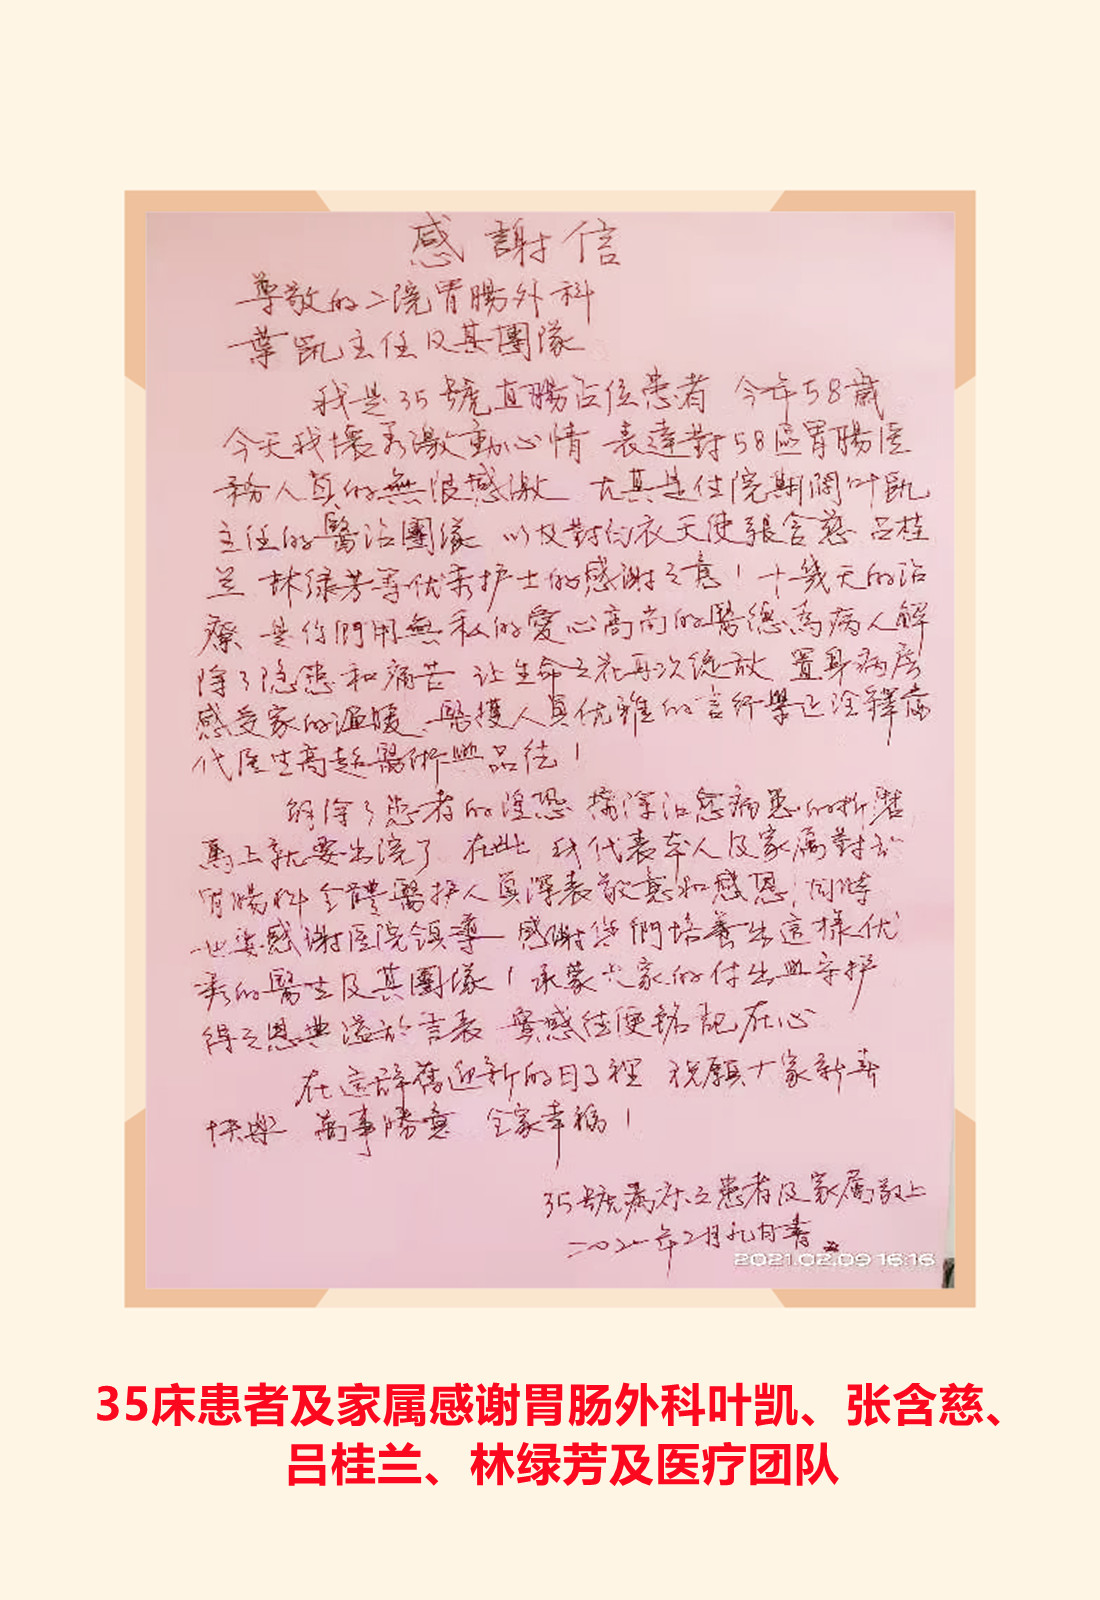 感謝信
尊敬的二院胃腸外科
葉凱主任及其團隊
我是35號直腸占位患者 今年58歲
今天我懷着激動心情 表達對58區胃腸医
務人員的無限感激 尤其是住院期間叶凱
主任的醫治團隊 以及對白衣天使張含慈 吕桂
兰 林绿芳等优秀护士的感謝之意！十幾天的治
療 是你們用無私的愛心高尚的醫德為病人解
除了隐患和痛苦 让生命之花再次绽放 置身病房
感受家的温暖 醫護人員优雅的言行舉止诠釋當
代医生高超醫術與品德！
解除了患者的惶恐 摘除治愈病患的折磨
馬上就要出院了 在此 我代表本人及家属對
胃腸科全體醫护人員深表敬意和感恩，同時
也要感謝医院領導 感謝您們培養出這樣优
秀的醫生及其團隊！承蒙大家的付出與守护
得之恩典溢於言表 實感 銘記在心
在這辞舊迎新的日子裡 祝願大家新春
快樂 萬事勝意 全家幸福！
35號病床之患者及家属敬上
二〇二一年2月九日書
2021.02.09 16:16
35床患者及家属感谢胃肠外科叶凯、张含慈、
吕桂兰、林绿芳及医疗团队